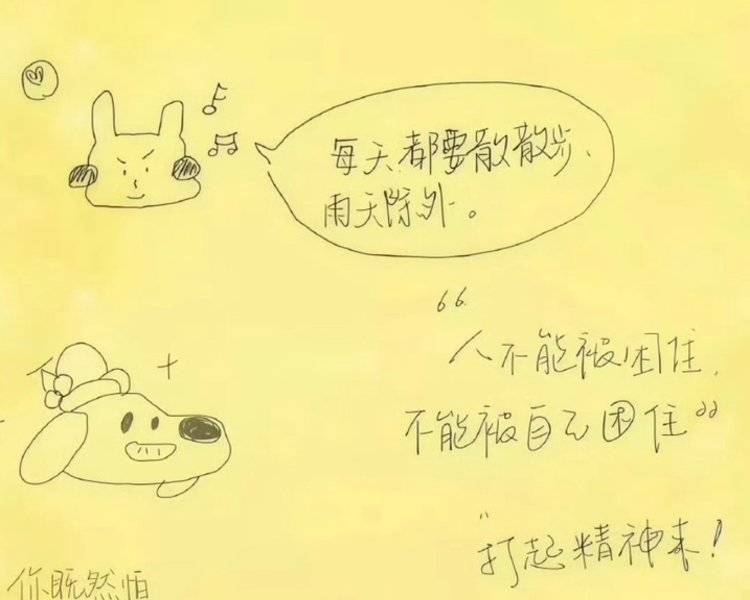 每天都要散散步、
雨天除外。
“人不能被困住,
不能被自己困住”
“打起精神来!
你既然怕